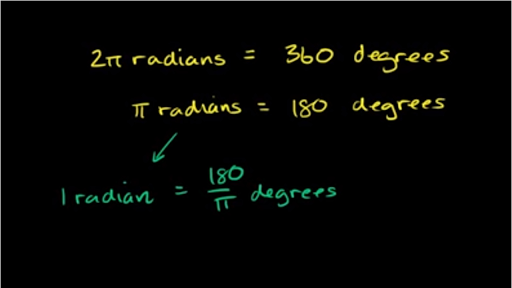 2π radians = 360 degrees
π radians = 180 degrees
1 radian = 180/π degrees